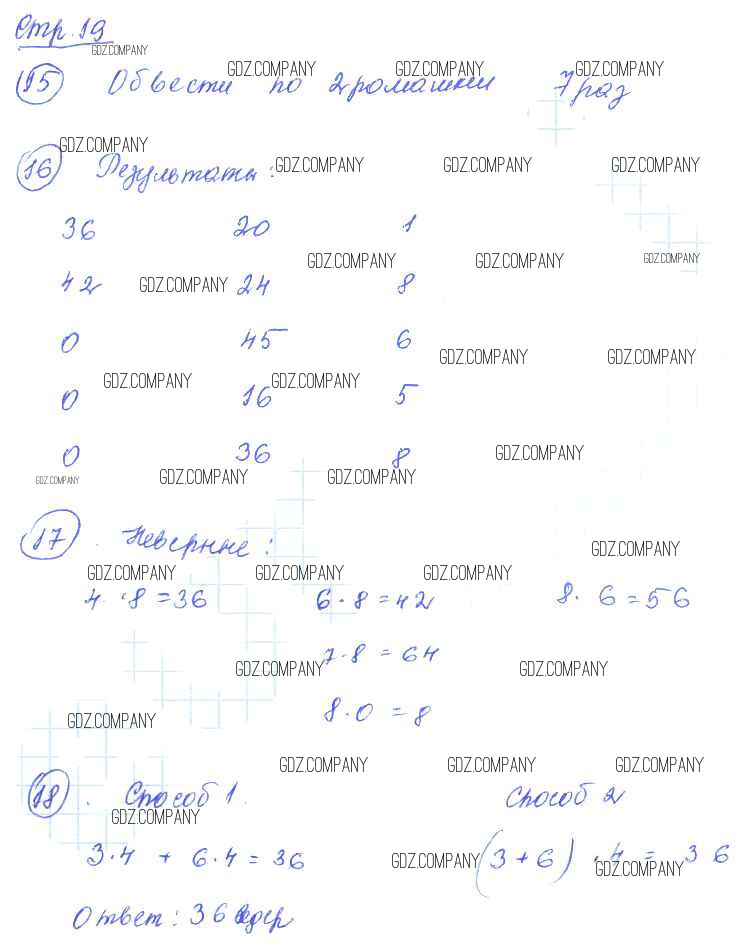 Стр. 19
GDZ.COMPANY
15 Обвести по 2 ромашки 7 раз
GDZ.COMPANY GDZ.COMPANY GDZ.COMPANY
GDZ.COMPANY
16 Результаты: GDZ.COMPANY GDZ.COMPANY GDZ.COMPANY
36 20 1
GDZ.COMPANY GDZ.COMPANY GDZ.COMPANY
42 GDZ.COMPANY 24 8
0 45 6
GDZ.COMPANY GDZ.COMPANY
GDZ.COMPANY GDZ.COMPANY
0 16 5
0 36 8 GDZ.COMPANY
GDZ.COMPANY GDZ.COMPANY GDZ.COMPANY
17. Неверные:
GDZ.COMPANY
GDZ.COMPANY GDZ.COMPANY GDZ.COMPANY
4 · 8 = 36 6 · 8 = 42 8 · 6 = 56
7 · 8 = 64
GDZ.COMPANY GDZ.COMPANY
8 · 0 = 8
GDZ.COMPANY
GDZ.COMPANY GDZ.COMPANY GDZ.COMPANY
18. Способ 1. Способ 2
GDZ.COMPANY
3 · 4 + 6 · 4 = 36 GDZ.COMPANY (3 + 6) · 4 = 36
GDZ.COMPANY
Ответ: 36 ведер